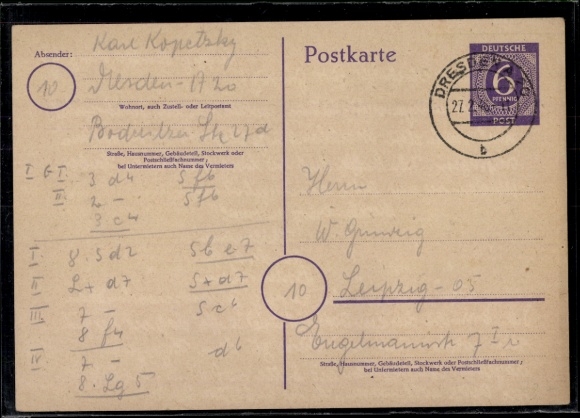 Absender: Karl Kopetzky
10 Dresden-A 20
Wohnort, auch Zustell- oder Leitpostamt
Bodnitzer-Str. 27d
Straße, Hausnummer, Gebäudeteil, Stockwerk oder
Postschließfachnummer;
bei Untermietern auch Name des Vermieters
I G I. 3 d4 S f6
II. 2 - S f6
3 c4
I. 8. S d2 S b e7
II L + d7 S + d7
III 7 - S c6
8 f4
IV 7 - d6
8. L g5
Postkarte
DEUTSCHE
6
PFENNIG
POST
DRESDEN
27.2
b
Herrn
W.
10 Leipzig-O5
7
Straße, Hausnummer, Gebäudeteil, Stockwerk oder Postschließfachnummer;
bei Untermietern auch Name des Vermieters